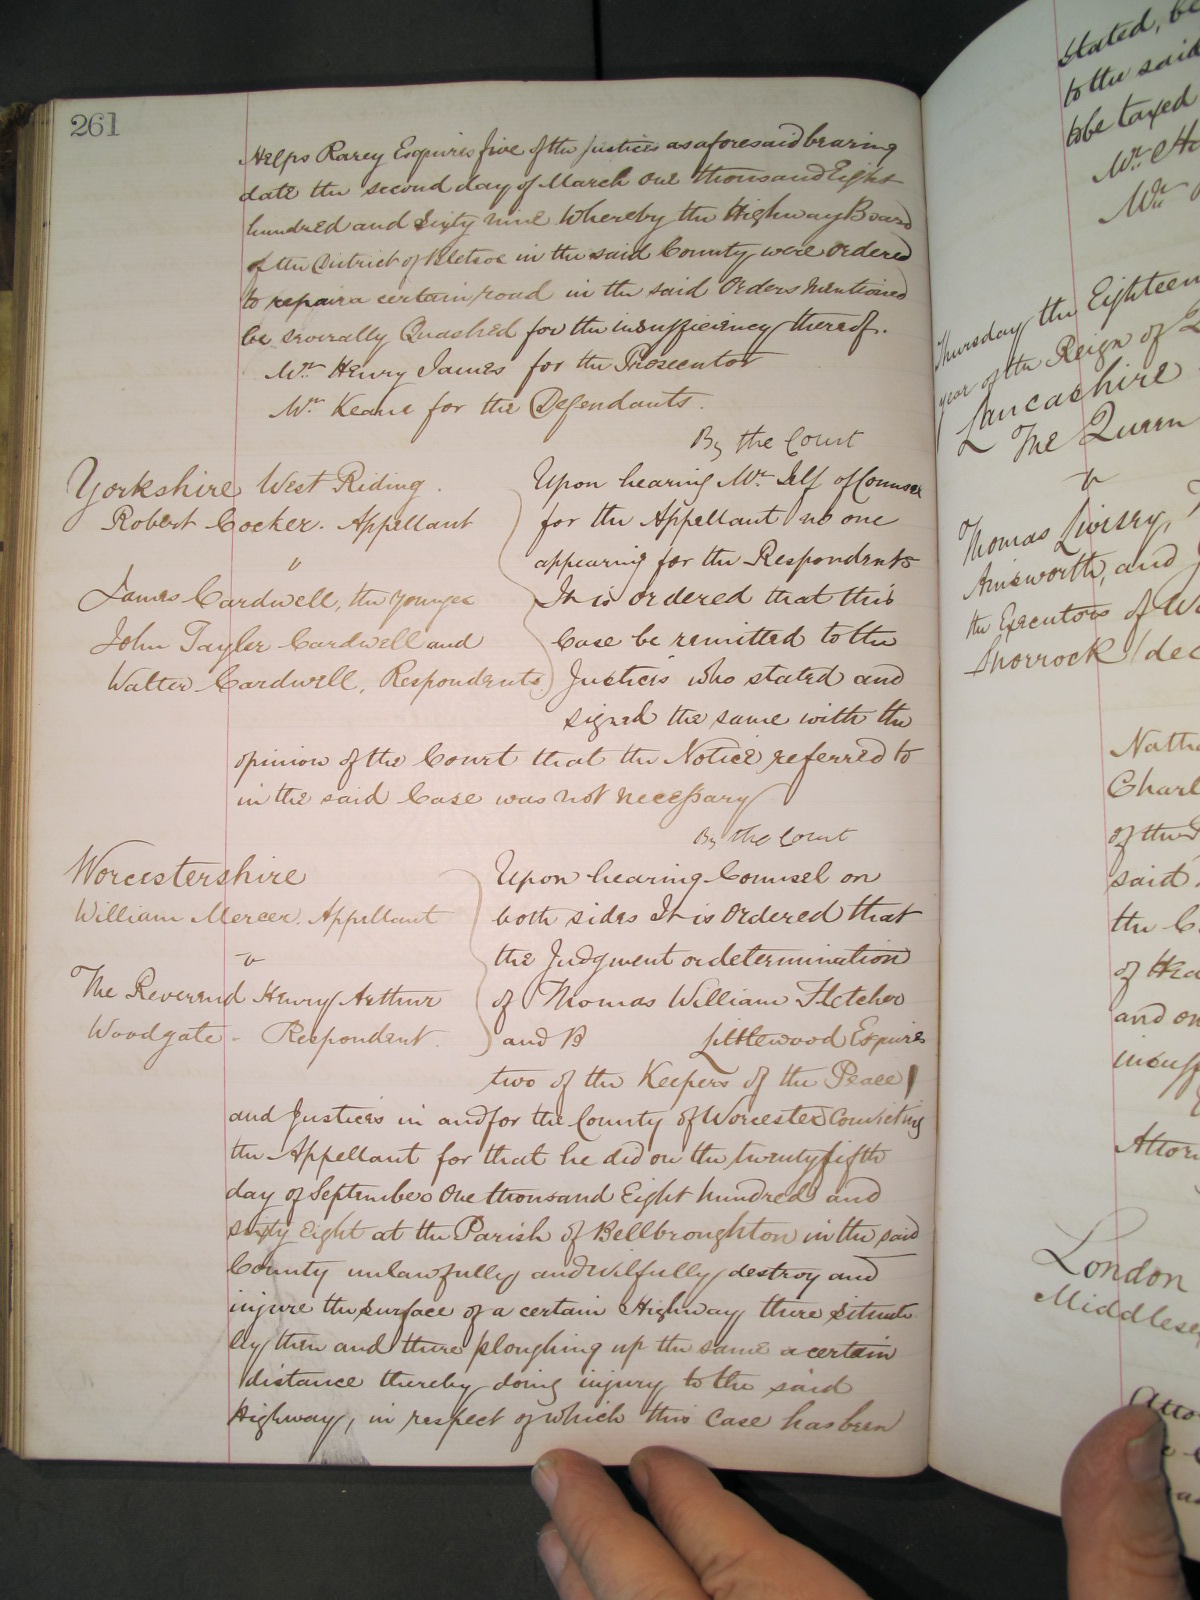 261
Helps Rarey Esquires five of the Justices as aforesaid bearing
date the second day of March One thousand Eight
hundred and Sixty nine Whereby the Highway Board
of the District of Bletsoe in the said County were Ordered
to repair a certain road in the said Orders Mentioned
be severally Quashed for the insufficiency thereof.
Mr. Henry James for the Prosecutor
Mr. Keane for the Defendants.
By the Court
Yorkshire West Riding.
Robert Cocker. Appellant
v
James Cardwell, the younger
John Tayler Cardwell and
Walter Cardwell, Respondents.
Upon hearing Mr. Self of Counsel
for the Appellant no one
appearing for the Respondents
It is Ordered that this
Case be remitted to the
Justices who stated and
signed the same with the
opinion of the Court that the Notice referred to
in the said Case was not necessary
By the Court
Worcestershire
William Mercer. Appellant
v
The Reverend Henry Arthur
Woodgate - Respondent.
Upon hearing Counsel on
both sides It is Ordered that
the Judgment or determination
of Thomas William Fletcher
and B Littlewood Esquires
two of the Keepers of the Peace
and Justices in and for the County of Worcester Convicting
the Appellant for that he did on the twenty fifth
day of September One thousand Eight hundred and
sixty Eight at the Parish of Bellbroughton in the said
County unlawfully and Wilfully destroy and
injure the surface of a certain Highway there situate
by then and there ploughing up the same a certain
distance thereby doing injury to the said
Highway, in respect of which this Case has been
stated, be
to the said
to be taxed
Mr.
Mr.
Thursday the Eighteen
year of the Reign of
Lancashire
The Queen
v
Thomas Livesey,
Ainsworth, and
the Executors of
Shorrock dec
Nath
Charl
of the
said
the C
of Hea
and on
insuff
Attor
London
Middlese
Atto